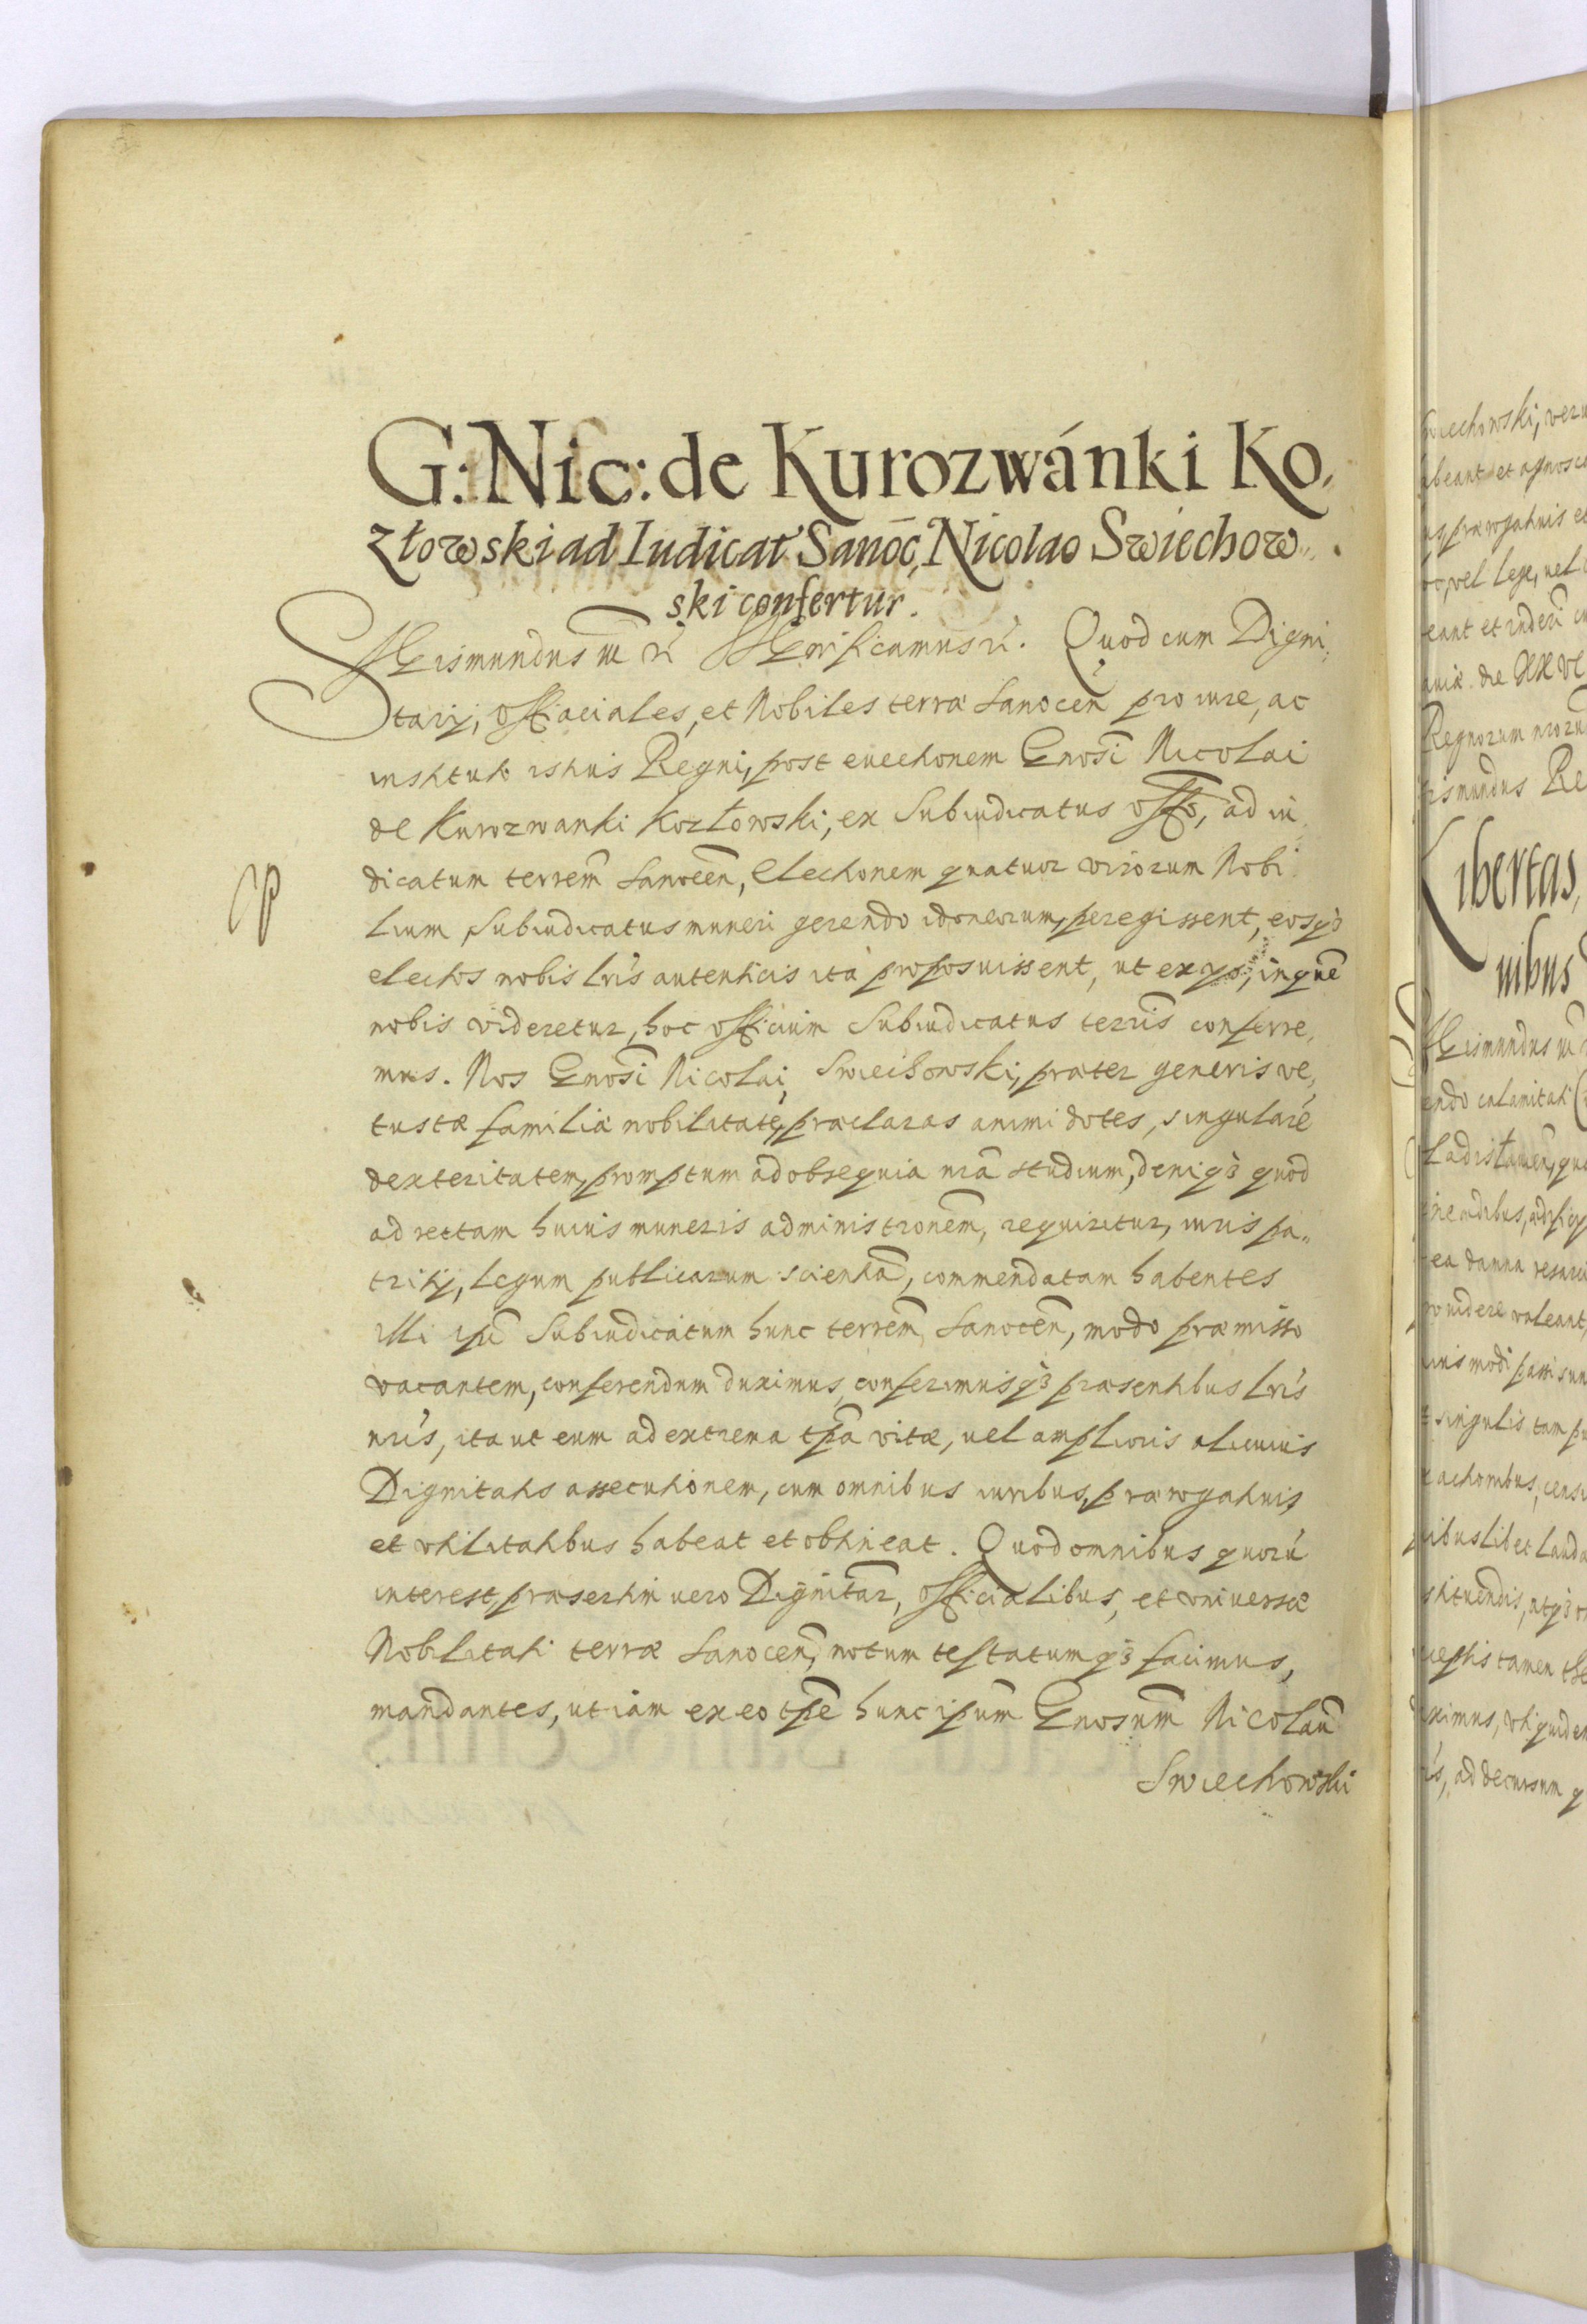 G: Nic: de Kurozwánki Ko,
złowski ad Iudicat Sanoc, Nicolao Swiechow,,
ski confertur.
Sigismundus III Significamus. Quod cum Digni,
tarij, officiales, et Nobiles terræ Sanocen pro iure, ac
instituto istius Regni, post euectionem Gnosi Nicolai
de Kurozwanki Kozłowski, ex Subiudicatus offo, ad iu,
dicatum terrem Sanocen, electionem quatuor virorum Nobi,
lium Subiudicatus muneri gerendo idoneorum, peregissent, eosq3
electos nobis lris autenticis ità proposuissent, ut ex ijs, in quē
nobis videretur, hoc officium Subiudicatus terris conferre,
mus. Nos Gnosi Nicolai, Swiechowski, præter generis ve,
tustæ familiæ nobilitatē, præclaras animi dotes, singularē
dexteritatem, promptum ad obsequia nra studium, deniq3 quod
ad rectam huius muneris administronem, requiritur, iuris pa,,
trij, legum publicarum scientiā, commendatam habentes
illi ipi Subiudicatum hunc terrem Sanocen, modo præmisso
vacantem, conferendum duximus, conferimusq3 præsentibus lris
nris, ita ut eum ad extrema tpa vitæ, uel amplioris alicuius
Dignitatis assecutionem, cum omnibus iuribus, prærogatiuis
et vtilitatibus habeat et obtineat. Quod omnibus quorū
interest, præsertim uero Dignitar, officialibus, et vniuersæ
Nobilitati terræ Sanocen, notum testatumq3 facimus,
mandantes, ut iam ex eo tpe hunc ipum Gnosum Nicolaū
Swiechowski
Swiechowski, veru
et agnosca
prærogatiuis et
vel lege, uel
et inderi
die XXVI
Regnorum nrorum
Re
Libertas,
nibus
Sigismundus III
calamitati
Ladislauien, qu
damna resarci
uidere ualeant,
modi passi sun
singulis tam pu
actionibus, censi
libet Lauda
atq3
tamen
ximus, vti quidem
ad decursum q